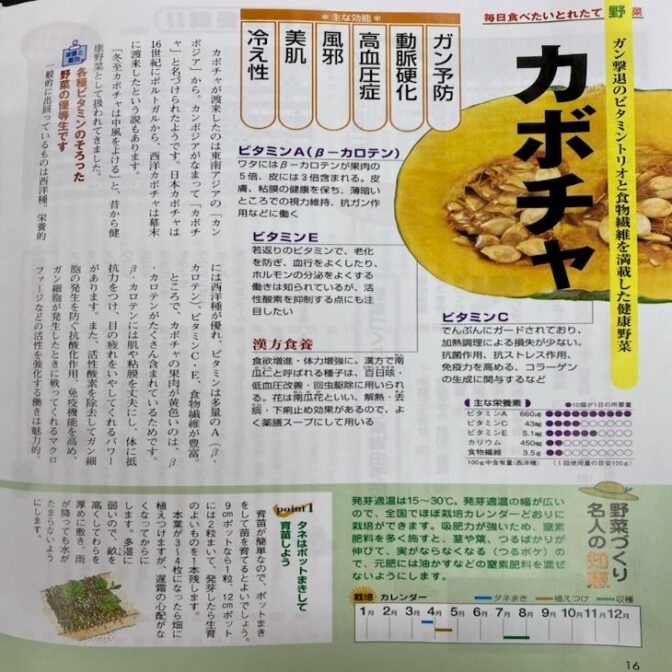 毎日食べたいとれたて野菜
ガン撃退のビタミントリオと食物繊維を満載した健康野菜
カボチャ
＊主な効能＊
ガン予防
動脈硬化
高血圧症
風邪
美肌
冷え性
ビタミンA（β－カロテン）
ワタにはβ－カロテンが果肉の
5倍、皮には3倍含まれる。皮
膚、粘膜の健康を保ち、薄暗い
ところでの視力維持、抗ガン作
用などに働く
ビタミンE
若返りのビタミンで、老化
を防ぎ、血行をよくしたり、
ホルモンの分泌をよくする
働きは知られているが、活
性酸素を抑制する点にも注
目したい
漢方食養
食欲増進・体力増強に。漢方で南
瓜仁と呼ばれる種子は、百日咳・
低血圧改善・回虫駆除に用いられ
る。花は南瓜花といい、解熱・去
痰・下痢止め効果があるので、よ
く薬膳スープにして用いる
ビタミンC
でんぷんにガードされており、
加熱調理による損失が少ない。
抗菌作用、抗ストレス作用、
免疫力を高める、コラーゲン
の生成に関与するなど
主な栄養素
●10個が1日の所要量
ビタミンA 660μg
ビタミンC 43mg
ビタミンE 5.1mg
カリウム 450mg
食物繊維 3.5g
100g中含有量（西洋種）
（1回使用量の目安100g）
カボチャが渡来したのは東南アジアの「カン
ボジア」から。カンボジアがなまって「カボチ
ャ」と名づけられたようです。日本カボチャは
16世紀にポルトガルから、西洋カボチャは幕末
に渡来したという説もあります。
「冬至カボチャは中風をよける」と、昔から健
康野菜として扱われてきました。
各種ビタミンのそろった
野菜の優等生です
一般的に出回っているものは西洋種。栄養的
には西洋種が優れ、ビタミンは多量のA（β-
カロテン）、ビタミンC・E、食物繊維が豊富。
ところで、カボチャの果肉が黄色いのは、β
-カロテンがたくさん含まれているためです。
β-カロテンには肌や粘膜を丈夫にし、体に抵
抗力をつけ、目の疲れをいやしてくれるパワー
があります。また、活性酸素を除去してガン細
胞の発生を防ぐ抗酸化作用、免疫機能を高め、
ガン細胞が発生したときに戦ってくれるマクロ
ファージなどの活性を強化する働きは魅力的。
野菜づくり
名人の知恵
発芽適温は15～30℃。発芽適温の幅が広い
ので、全国でほぼ栽培カレンダーどおりに
栽培ができます。吸肥力が強いため、窒素
肥料を多く施すと、茎や葉、つるばかりが
伸びて、実がならなくなる（つるボケ）の
で、元肥には油かすなどの窒素肥料を混ぜ
ないようにします。
栽培カレンダー
タネまき
植えつけ
収穫
1月 2月 3月 4月 5月 6月 7月 8月 9月 10月 11月 12月
point1
タネはポットまきして
育苗しよう
育苗が簡単なので、ポットまき
をして苗を育てるとよいでしょう。
9cmポットなら1粒、12cmポット
には2粒まいて、発芽したら生育
のよいものを1本残します。
本葉が3～4枚になったら畑に
植えつけますが、遅霜の心配がな
くなってからに
します。多湿に
弱いので、畝を
高くしてわらを
厚めに敷き、雨
が降っても水が
たまらないよう
にします。
16